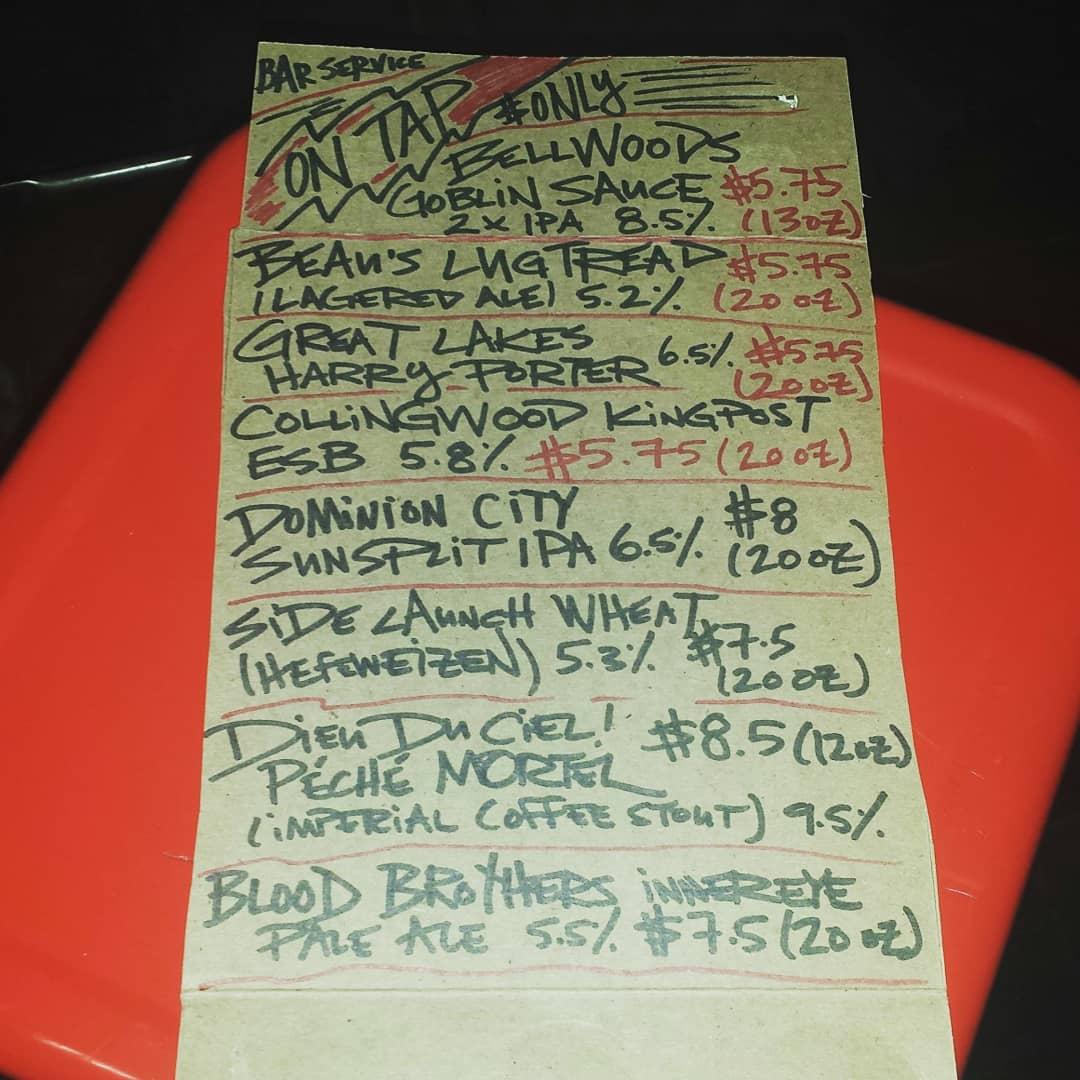 BAR SERVICE
ON TAP $ONLY
BELLWOODS
GOBLIN SAUCE $5.75
2X IPA 8.5% (13oz)
BEAU'S LUGTREAD $5.75
(LAGERED ALE) 5.2% (20 oz)
GREAT LAKES 6.5% $5.75
HARRY PORTER (20oz)
COLLINGWOOD KINGPOST
ESB 5.8% $5.75 (20 oz)
DOMINION CITY $8
SUNSPLIT IPA 6.5% (20 oz)
SIDE LAUNCH WHEAT $7.5
(HEFEWEIZEN) 5.3% (20oz)
DIEU DU CIEL! $8.5 (12oz)
PÉCHÉ MORTEL
(IMPERIAL COFFEE STOUT) 9.5%
BLOOD BROTHERS INNEREYE
PALE ALE 5.5% $7.5 (20 oz)